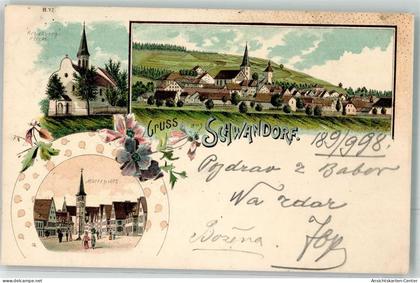 B. 17.
Kreuzberg
Kirche
Gruss aus
SCHWANDORF.
Marktplatz
18 9/9 98.
Pozdrav z Babov
Na zdar
Božena
Ansichtskarten-Center